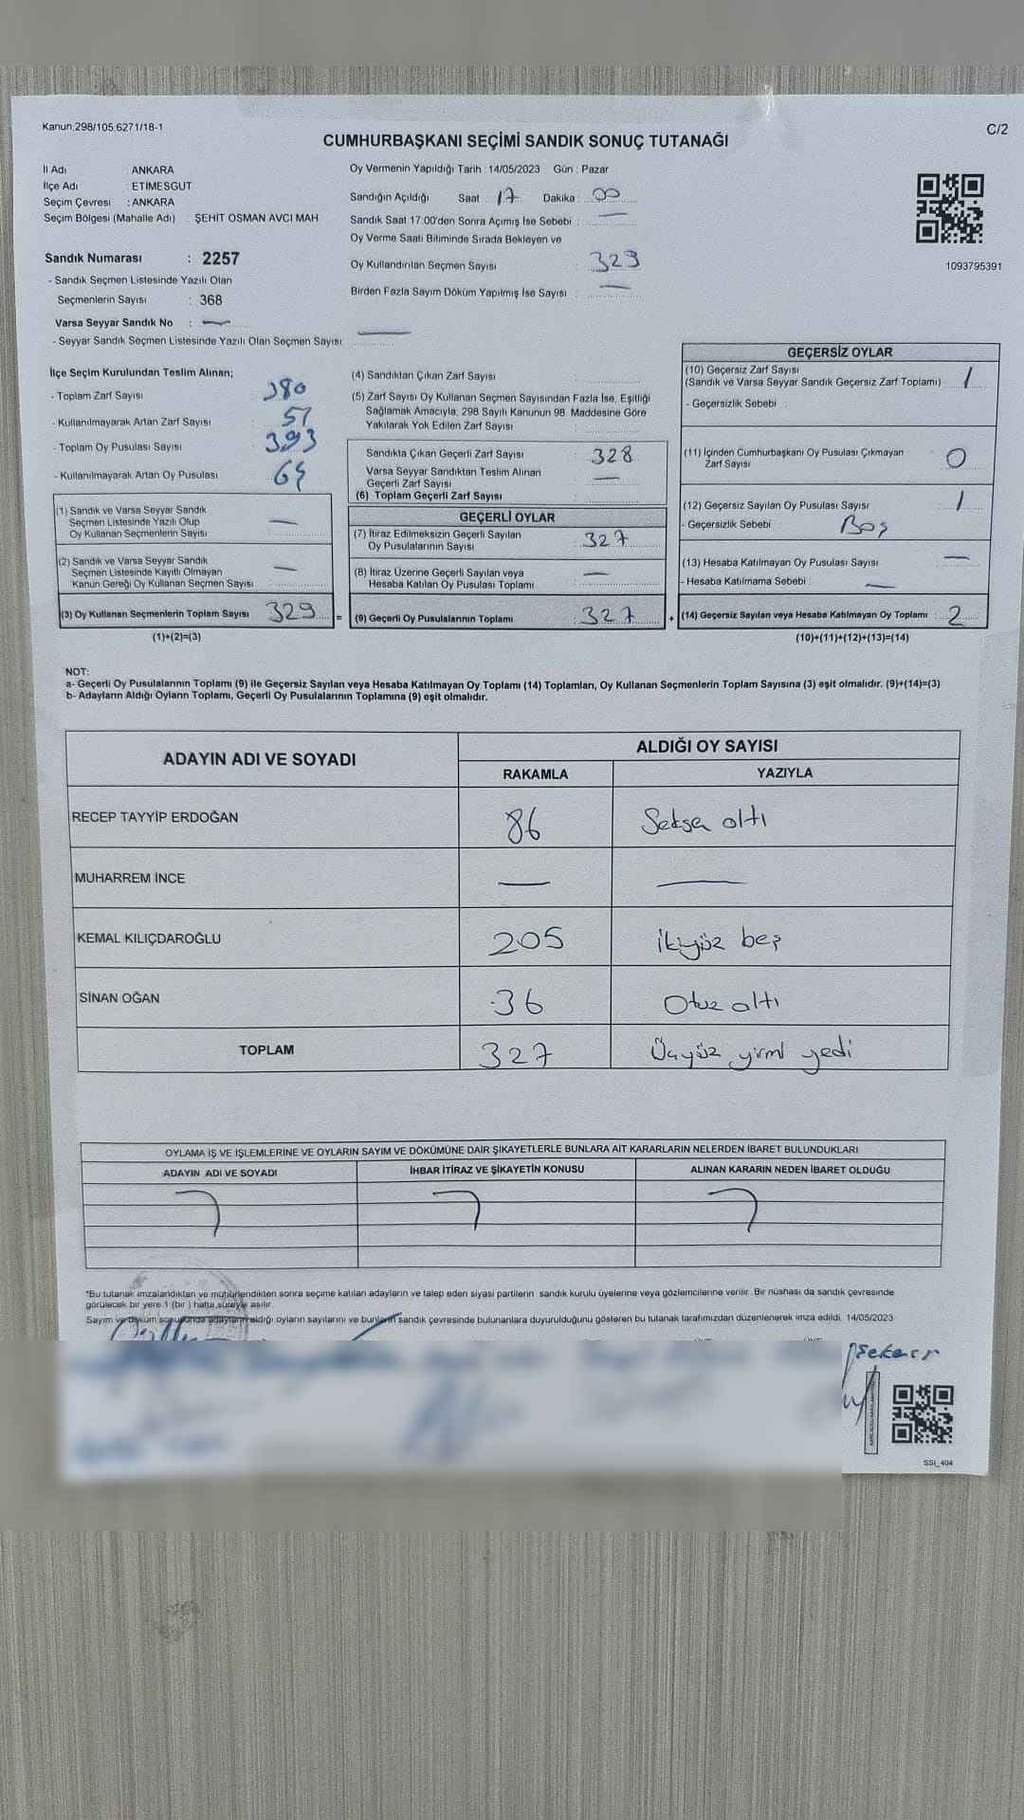 Kanun;298/105,6271/18-1
C/2
CUMHURBAŞKANI SEÇİMİ SANDIK SONUÇ TUTANAĞI
İl Adı ANKARA
İlçe Adı : ETİMESGUT
Seçim Çevresi : ANKARA
Seçim Bölgesi (Mahalle Adı) : ŞEHİT OSMAN AVCI MAH
Sandık Numarası : 2257
- Sandık Seçmen Listesinde Yazılı Olan
Seçmenlerin Sayısı : 368
Varsa Seyyar Sandık No : —
- Seyyar Sandık Seçmen Listesinde Yazılı Olan Seçmen Sayısı —
Oy Vermenin Yapıldığı Tarih : 14/05/2023 Gün : Pazar
Sandığın Açıldığı Saat 17 Dakika 00
Sandık Saat 17:00'den Sonra Açımış İse Sebebi : —
Oy Verme Saati Bitiminde Sırada Bekleyen ve
Oy Kullandırılan Seçmen Sayısı : 329
Birden Fazla Sayım Döküm Yapılmış İse Sayısı —
1093795391
İlçe Seçim Kurulundan Teslim Alınan;
- Toplam Zarf Sayısı : 380
- Kullanılmayarak Artan Zarf Sayısı : 51
- Toplam Oy Pusulası Sayısı : 393
- Kullanılmayarak Artan Oy Pusulası : 64
(1) Sandık ve Varsa Seyyar Sandık
Seçmen Listesinde Yazılı Olup
Oy Kullanan Seçmenlerin Sayısı —
(2) Sandık ve Varsa Seyyar Sandık
Seçmen Listesinde Kayıtlı Olmayan
Kanun Gereği Oy Kullanan Seçmen Sayısı —
(3) Oy Kullanan Seçmenlerin Toplam Sayısı 329 =
(1)+(2)=(3)
(4) Sandıktan Çıkan Zarf Sayısı
(5) Zarf Sayısı Oy Kullanan Seçmen Sayısından Fazla İse, Eşitliği
Sağlamak Amacıyla; 298 Sayılı Kanunun 98. Maddesine Göre
Yakılarak Yok Edilen Zarf Sayısı
Sandıkta Çıkan Geçerli Zarf Sayısı 328
Varsa Seyyar Sandıktan Teslim Alınan
Geçerli Zarf Sayısı —
(6) Toplam Geçerli Zarf Sayısı
GEÇERLİ OYLAR
(7) İtiraz Edilmeksizin Geçerli Sayılan
Oy Pusulalarının Sayısı 327
(8) İtiraz Üzerine Geçerli Sayılan veya
Hesaba Katılan Oy Pusulası Toplamı —
(9) Geçerli Oy Pusulalarının Toplamı : 327 +
GEÇERSİZ OYLAR
(10) Geçersiz Zarf Sayısı
(Sandık ve Varsa Seyyar Sandık Geçersiz Zarf Toplamı) 1
- Geçersizlik Sebebi :
(11) İçinden Cumhurbaşkanı Oy Pusulası Çıkmayan
Zarf Sayısı 0
(12) Geçersiz Sayılan Oy Pusulası Sayısı 1
- Geçersizlik Sebebi Boş
(13) Hesaba Katılmayan Oy Pusulası Sayısı —
- Hesaba Katılmama Sebebi —
(14) Geçersiz Sayılan veya Hesaba Katılmayan Oy Toplamı 2
(10)+(11)+(12)+(13)=(14)
NOT:
a- Geçerli Oy Pusulalarının Toplamı (9) ile Geçersiz Sayılan veya Hesaba Katılmayan Oy Toplamı (14) Toplamları, Oy Kullanan Seçmenlerin Toplam Sayısına (3) eşit olmalıdır. (9)+(14)=(3)
b- Adayların Aldığı Oyların Toplamı, Geçerli Oy Pusulalarının Toplamına (9) eşit olmalıdır.
ADAYIN ADI VE SOYADI ALDIĞI OY SAYISI
RAKAMLA YAZIYLA
RECEP TAYYİP ERDOĞAN 86 Seksen altı
MUHARREM İNCE — —
KEMAL KILIÇDAROĞLU 205 İkiyüz beş
SİNAN OĞAN 36 Otuz altı
TOPLAM 327 Üçyüz yirmi yedi
OYLAMA İŞ VE İŞLEMLERİNE VE OYLARIN SAYIM VE DÖKÜMÜNE DAİR ŞİKAYETLERLE BUNLARA AİT KARARLARIN NELERDEN İBARET BULUNDUKLARI
ADAYIN ADI VE SOYADI İHBAR İTİRAZ VE ŞİKAYETİN KONUSU ALINAN KARARIN NEDEN İBARET OLDUĞU
*Bu tutanak imzalandıktan ve mühürlendikten sonra seçime katılan adayların ve talep eden siyasi partilerin sandık kurulu üyelerine veya gözlemcilerine verilir. Bir nüshası da sandık çevresinde
görülecek bir yere 1 (bir) hafta süreyle asılır.
Sayım ve döküm sonucunda adayların aldığı oyların sayılarını ve bunların sandık çevresinde bulunanlara duyurulduğunu gösteren bu tutanak tarafımızdan düzenlenerek imza edildi. 14/05/2023
SSI_404